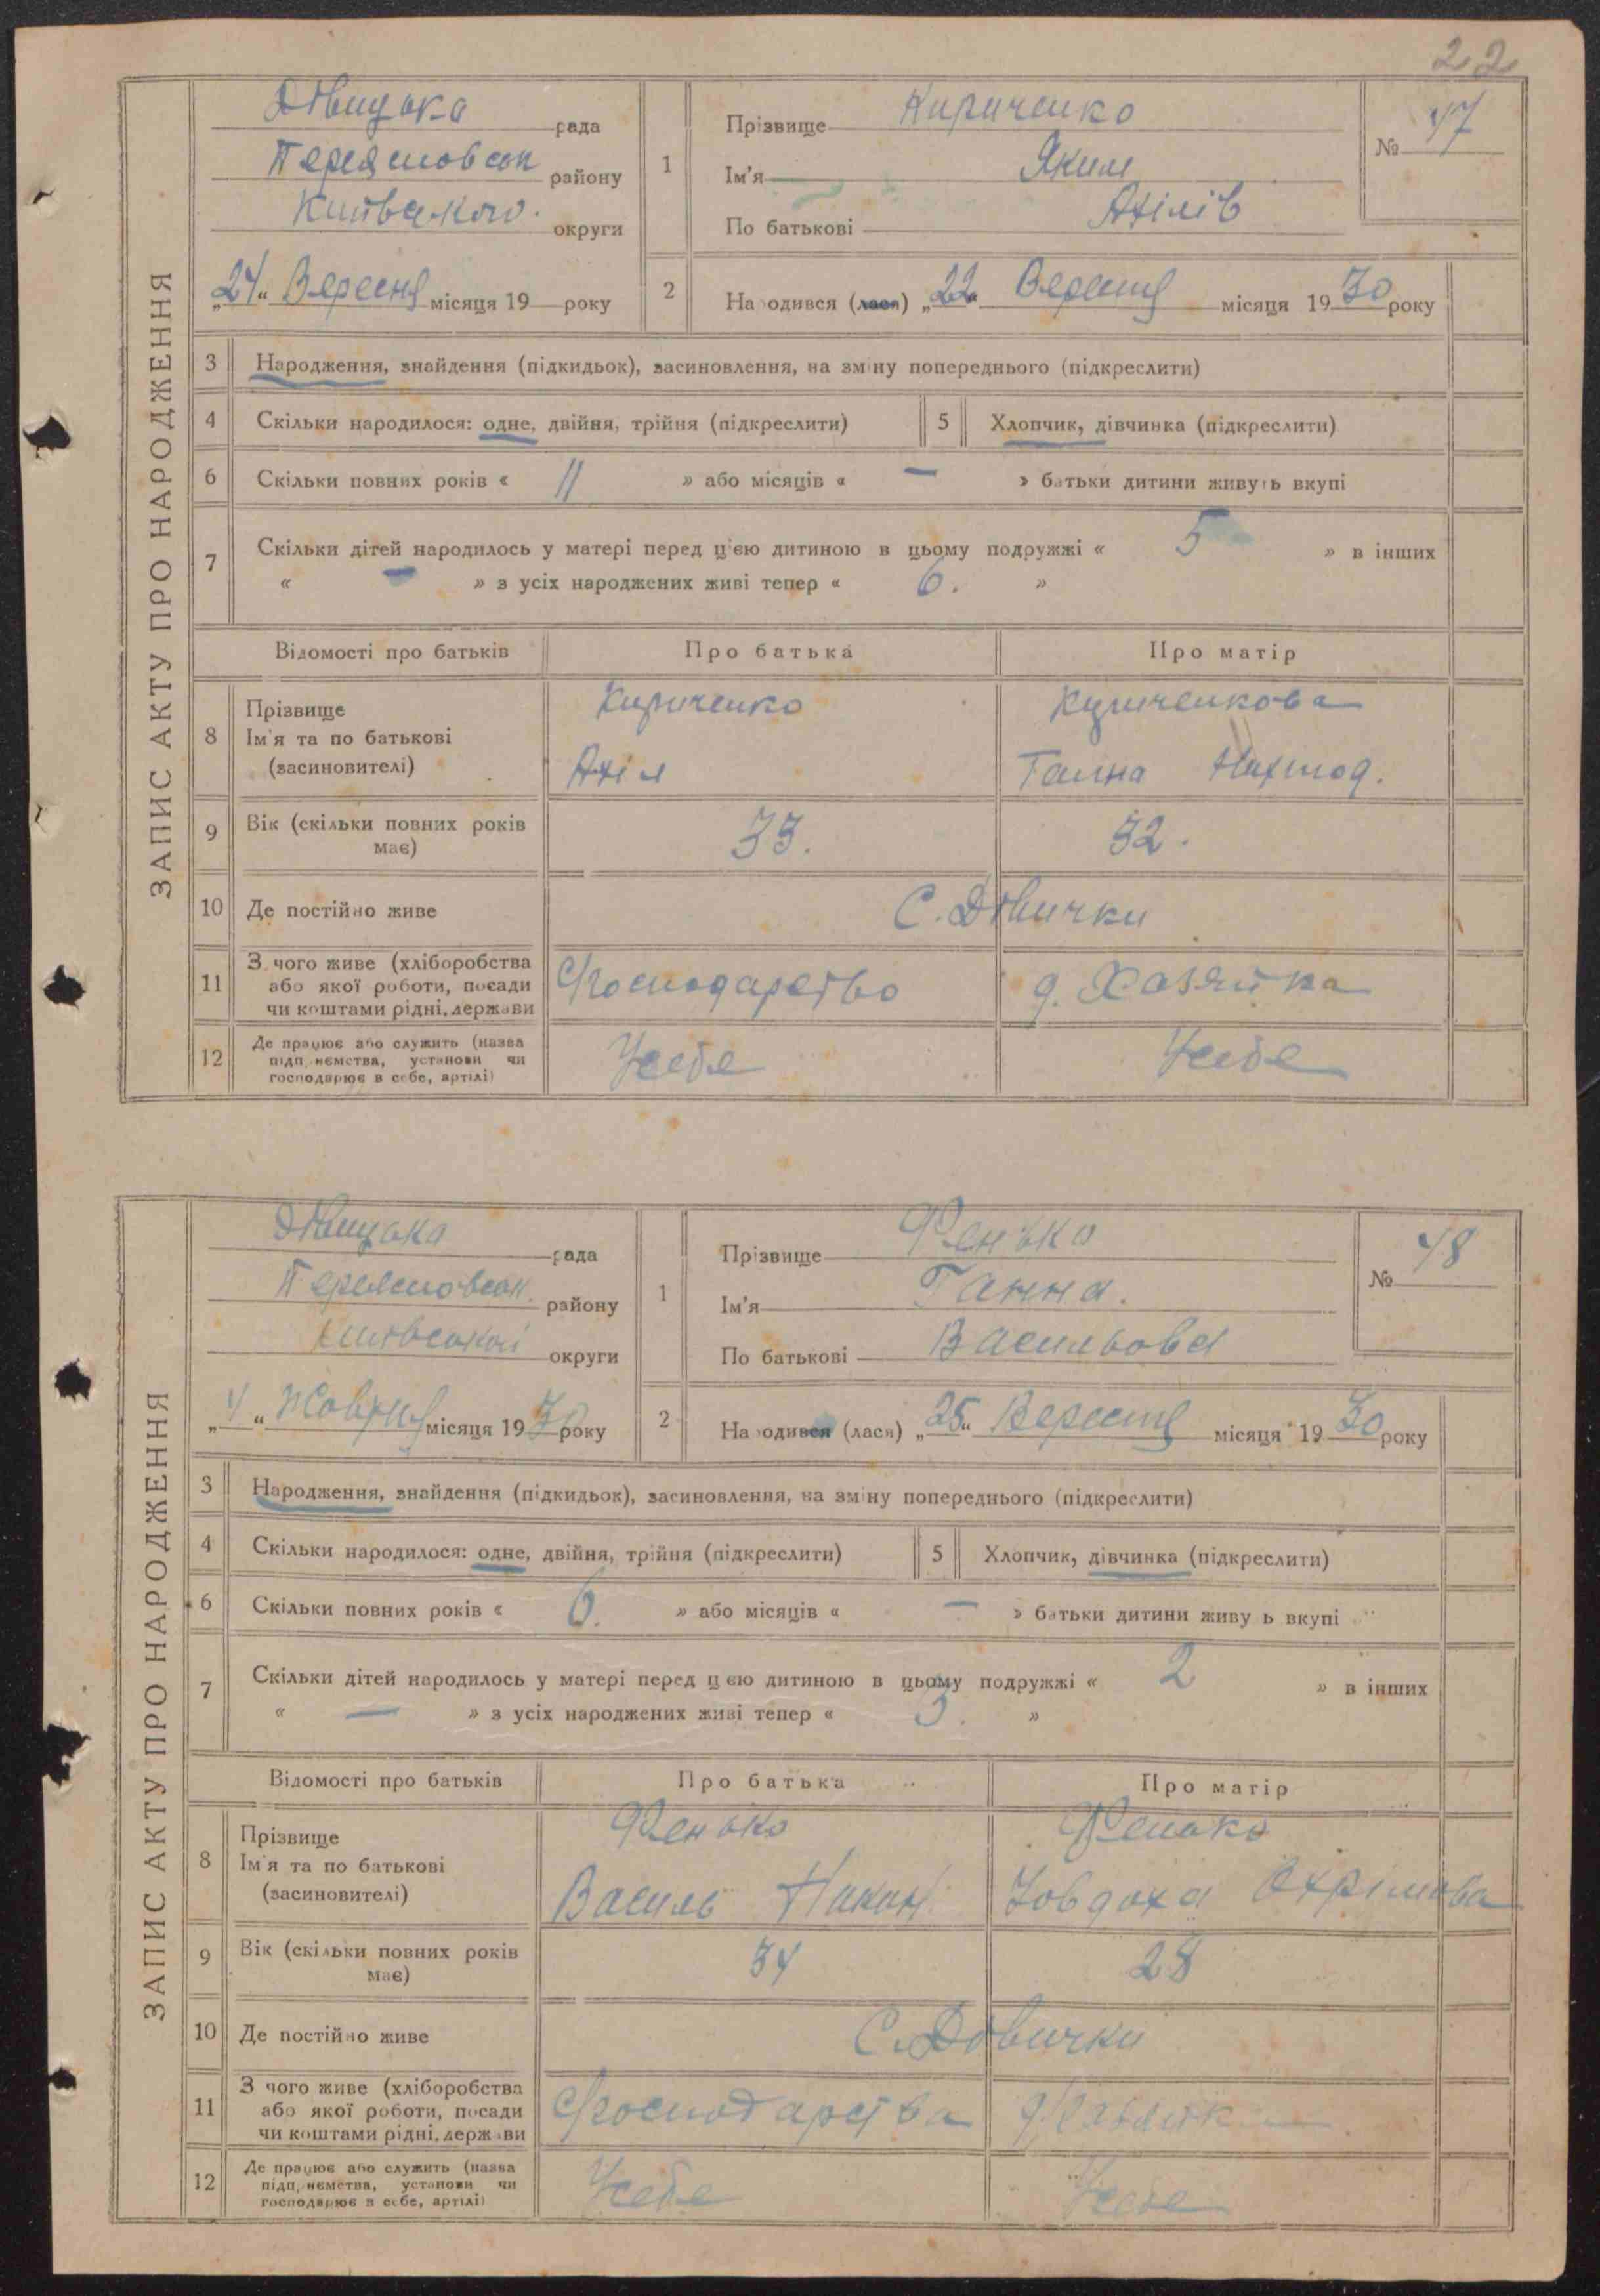 22
ЗАПИС АКТУ ПРО НАРОДЖЕННЯ
Дівицька рада
Переяславськ району
Київського округи
„24“ Вересня місяця 19 року
1
Прізвище Кириченко
Ім'я Яким
По батькові
№ 47
2
Народився (лася) „22“ Вересня місяця 1930 року
3 Народження, знайдення (підкидьок), засиновлення, на зміну попереднього (підкреслити)
4 Скільки народилося: одне, двійня, трійня (підкреслити) 5 Хлопчик, дівчинка (підкреслити)
6 Скільки повних років « 11 » або місяців « — » батьки дитини живуть вкупі
7 Скільки дітей народилось у матері перед цією дитиною в цьому подружжі « 5 » в інших
« — » з усіх народжених живі тепер « 6. »
Відомості про батьків Про батька Про матір
8 Прізвище
Ім'я та по батькові
(засиновителі)
Кириченко
Кириченкова
Ганна
9 Вік (скільки повних років має) 33. 32.
10 Де постійно живе С. Дівички
11 З чого живе (хліборобства
або якої роботи, посади
чи коштами рідні, держави
Господарство д. Хазяйка
12 Де працює або служить (назва
підприємства, установи чи
господарює в себе, артілі)
Усебе Усебе
ЗАПИС АКТУ ПРО НАРОДЖЕННЯ
Дівицька рада
Переяславськ. району
Київської округи
„4“ Жовтня місяця 1930 року
1
Прізвище Фенько
Ім'я Ганна.
По батькові Васильова
№ 48
2
Народився (лася) „25“ Вересня місяця 1930 року
3 Народження, знайдення (підкидьок), засиновлення, на зміну попереднього (підкреслити)
4 Скільки народилося: одне, двійня, трійня (підкреслити) 5 Хлопчик, дівчинка (підкреслити)
6 Скільки повних років « 6. » або місяців « — » батьки дитини живуть вкупі
7 Скільки дітей народилось у матері перед цією дитиною в цьому подружжі « 2 » в інших
« — » з усіх народжених живі тепер « 3. »
Відомості про батьків Про батька Про матір
8 Прізвище
Ім'я та по батькові
(засиновителі)
Фенько Фенько
Василь Никон Ївдоха Охрімова
9 Вік (скільки повних років має) 34 28
10 Де постійно живе С. Дівички
11 З чого живе (хліборобства
або якої роботи, посади
чи коштами рідні, держави
Господарства д. Хазяйка
12 Де працює або служить (назва
підприємства, установи чи
господарює в себе, артілі)
Усебе Усебе